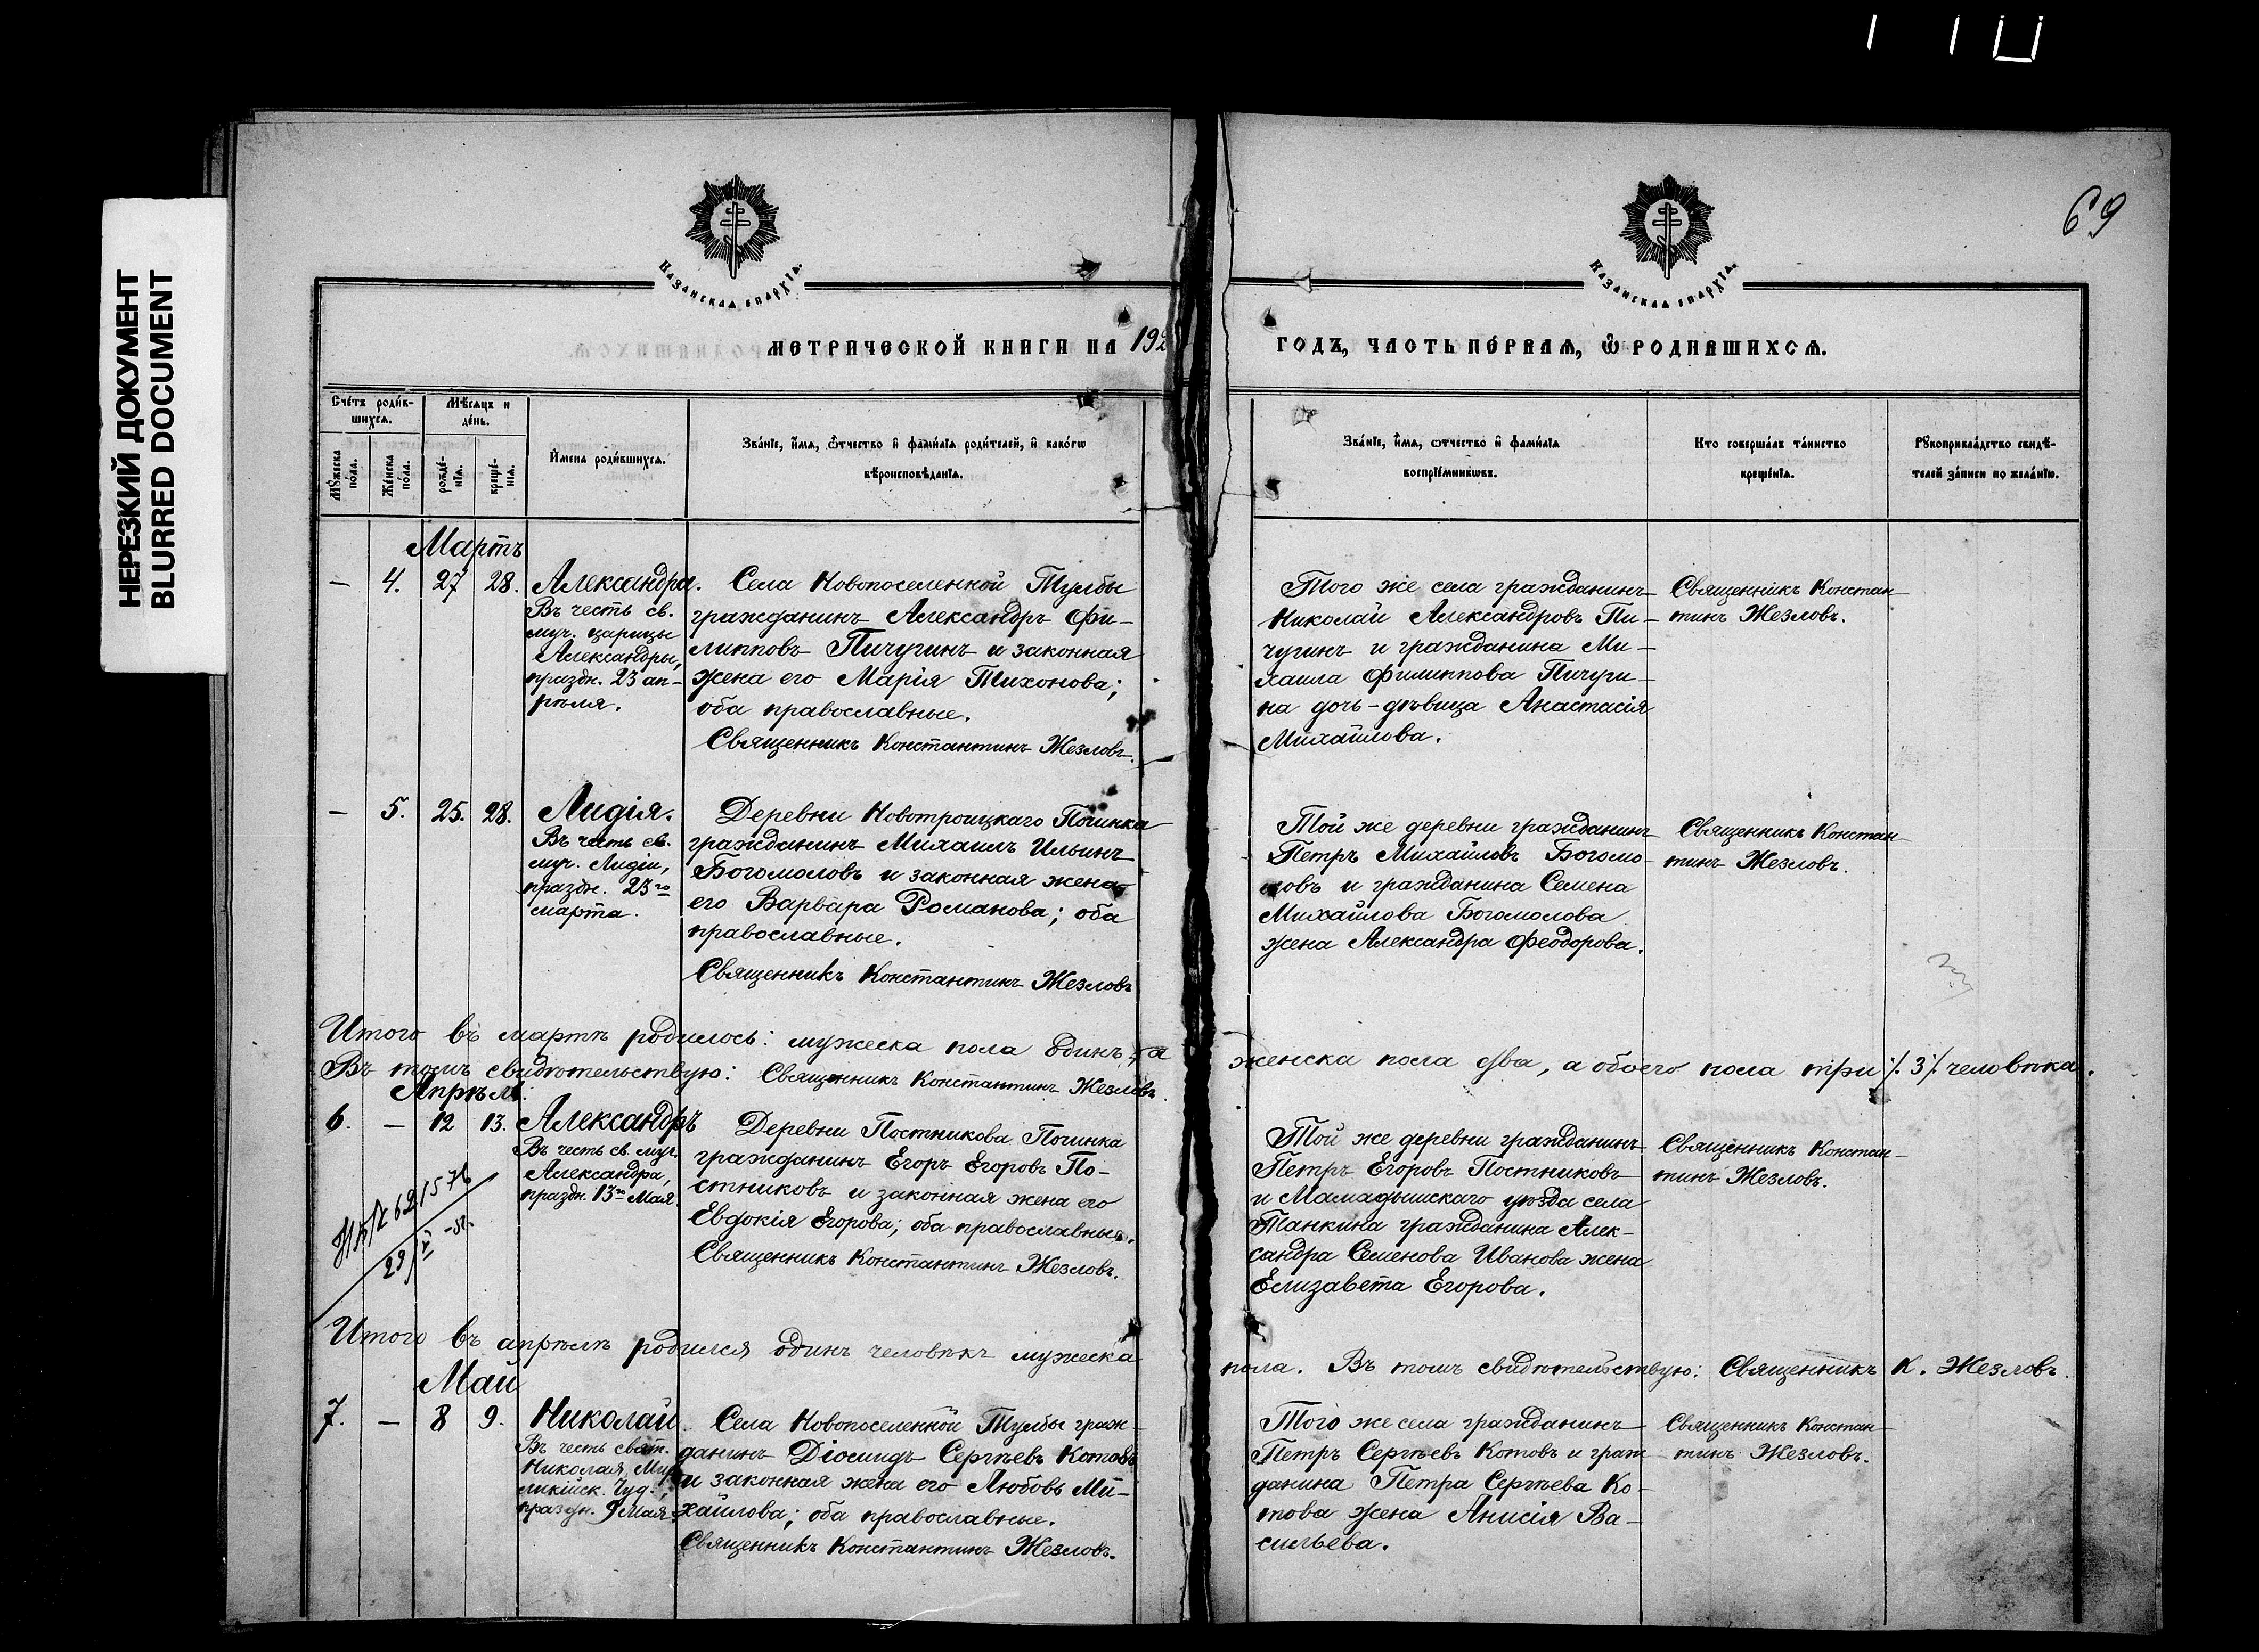 НЕРЕЗКИЙ ДОКУМЕНТ
BLURRED DOCUMENT
69
Казанская епархїа.
Казанская епархїа.
МЕТРИЧЕСКОЙ КНИГИ НА 192
ГОДЪ, ЧАСТЬ ПЕРВАЯ, Ѿ РОДИВШИХСЯ.
Сче́тъ роди́в-
шихся.
Мѣсяцъ и
де́нь.
Мꙋжеска
по́ла.
Же́нска
по́ла.
рожде́-
нїя.
креще́-
нїя.
И҆мена роди́вшихся.
Зва́нїе, и҆́мя, ѻ҆́тчество и҆ фами́лїа роди́телей, и҆ како́гѡ
вѣроисповѣ́данїя.
Зва́нїе, и҆́мя, ѻтчество и҆ фами́лїа
воспрїе́мникѡвъ.
Кто соверша́лъ та́инство
креще́нїя.
Рꙋкоприкла́дство свидѣ́-
телей за́писи по жела́нїю.
Мартъ
— 4. 27 28. Александра.
Въ честь св.
муч. царицы
Александры,
праздн. 23 ап-
рѣля.
Села Новопоселенной Тумбы
гражданинъ Александръ Фи-
липповъ Пичугинъ и законная
жена его Марія Тихонова;
оба православные.
Священникъ Константинъ Жезловъ.
Того же села гражданинъ
Николай Александровъ Пи-
чугинъ и гражданина Ми-
хаила Филиппова Пичуги-
на дочь-дѣвица Анастасія
Михайлова.
Священникъ Констан-
тинъ Жезловъ.
— 5. 25. 28. Лидія.
Въ честь св.
муч. Лидіи,
праздн. 23го
марта.
Деревни Новотроицкаго Починка
гражданинъ Михаилъ Ильинъ
Богомоловъ и законная жена
его Варвара Романова; оба
православные.
Священникъ Константинъ Жезловъ
Той же деревни гражданинъ
Петръ Михайловъ Богомо-
ловъ и гражданина Семена
Михайлова Богомолова
жена Александра Феодорова.
Священникъ Констан-
тинъ Жезловъ.
Итого въ мартѣ родилось: мужеска пола одинъ, а женска пола два, а обоего пола три /. 3 /. человѣка.
Въ томъ свидѣтельствую: Священникъ Константинъ Жезловъ.
Апрѣль.
6. — 12 13. Александръ
Въ честь св. муч.
Александра,
праздн. 13го Мая.
Деревни Постникова Починка
гражданинъ Егоръ Егоровъ По-
стниковъ и законная жена его
Евдокія Егорова; оба православные.
Священникъ Константинъ Жезловъ.
Той же деревни гражданинъ
Петръ Егоровъ Постниковъ
и Мамадышскаго уѣзда села
Танкина гражданина Алек-
сандра Семенова Иванова жена
Елизавета Егорова.
Священникъ Констан-
тинъ Жезловъ.
Итого въ апрѣлѣ родился одинъ человѣкъ мужеска пола. Въ томъ свидѣтельствую: Священникъ К. Жезловъ.
Май
7. — 8 9. Николай
Въ честь свят.
Николая, Мир-
ликійск. Чуд.,
праздн. 9 Мая.
Села Новопоселенной Тумбы граж-
данинъ Діомидъ Сергѣевъ Котовъ
и законная жена его Любовь Ми-
хайлова; оба православные.
Священникъ Константинъ Жезловъ.
Того же села гражданинъ
Петръ Сергѣевъ Котовъ и граж-
данина Петра Сергѣева Ко-
това жена Анисія Ва-
сильева.
Священникъ Констан-
тинъ Жезловъ.